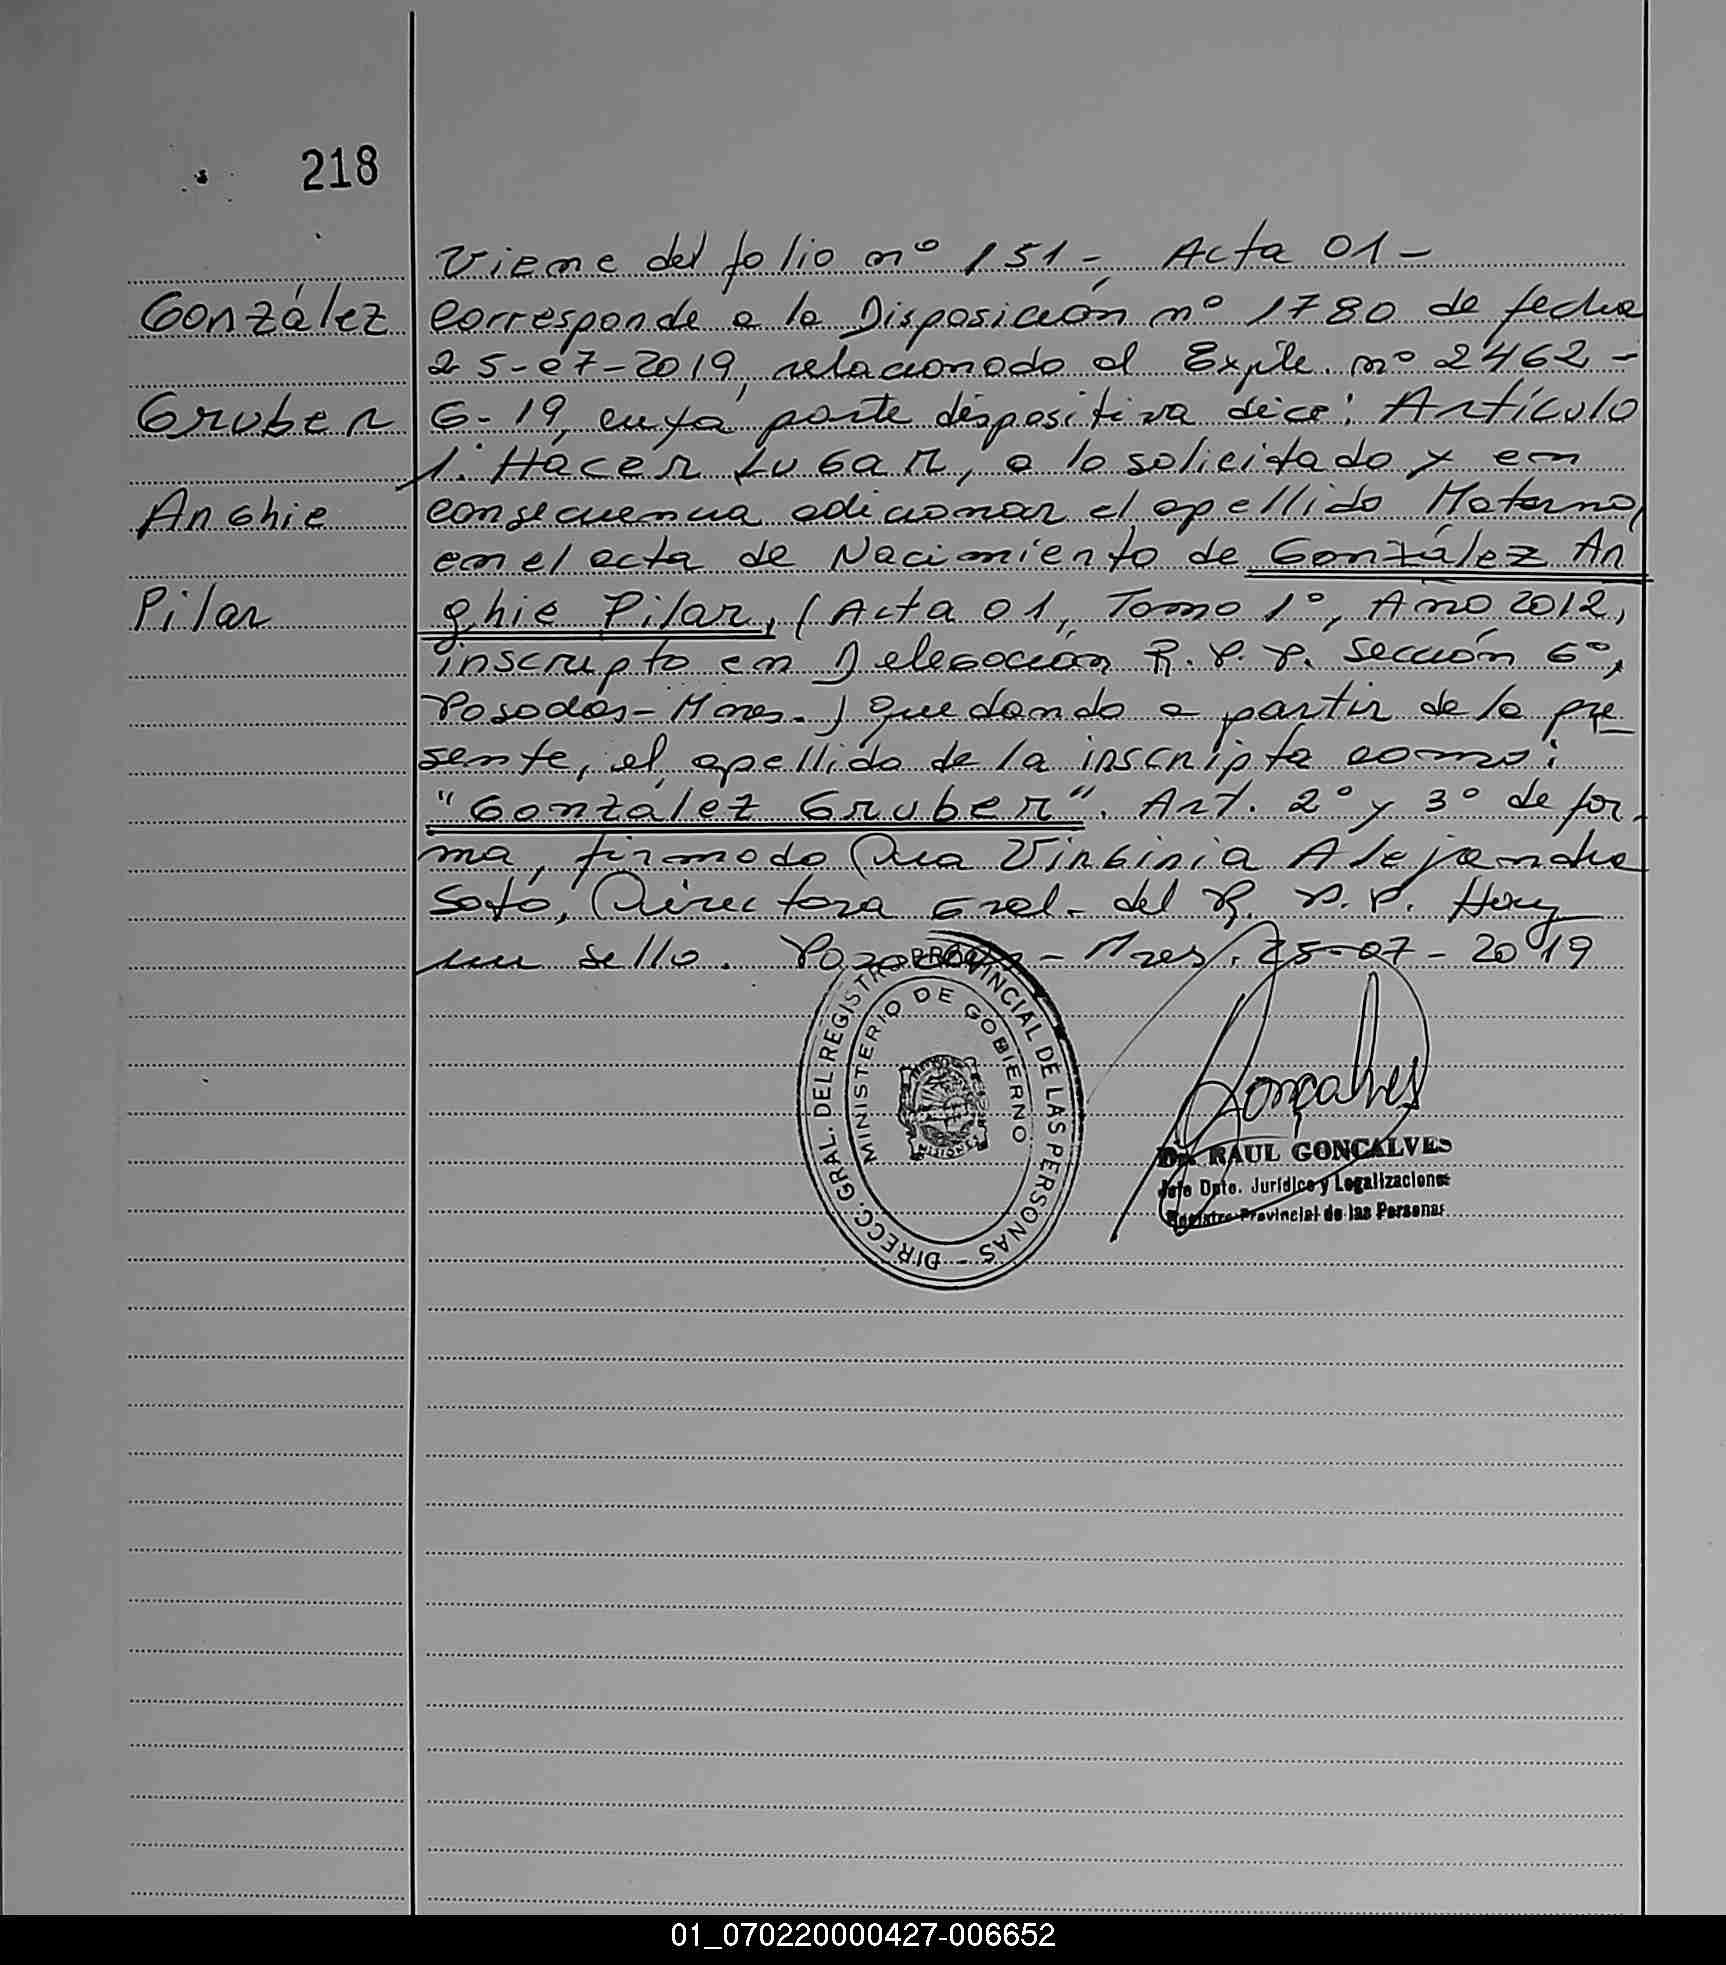 218
Viene del folio nº 151-, Acta 01-
González
Corresponde a la Disposición nº 1780 de fecha
25-07-2019, relacionado al Expte. nº 2462-
Gruber
G-19, cuya parte dispositiva dice: Artículo
1: Hacer Lugar, a lo solicitado y en
Anghie
consecuencia adicionar el apellido Materno,
en el acta de Nacimiento de González An
Pilar
ghie Pilar, (Acta 01, Tomo 1º, Año 2012,
inscripto en Delegación R.P.P. Sección 6º,
Posadas-Mnes.) quedando a partir de la pre
sente, el apellido de la inscripta como:
"González Gruber". Art. 2º y 3º de for-
ma, firmado Virginia Alejandra
Soto, Directora Gral. del R. P. P. Hay
un sello. Posadas - Mnes. 25-07-2019
DIRECC. GRAL. DEL REGISTRO PROVINCIAL DE LAS PERSONAS -
MINISTERIO DE GOBIERNO
MISIONES
Gonçalves
Dr. RAUL GONÇALVES
Jefe Dpto. Jurídico y Legalizaciones
Registro Provincial de las Personas
01_070220000427-006652